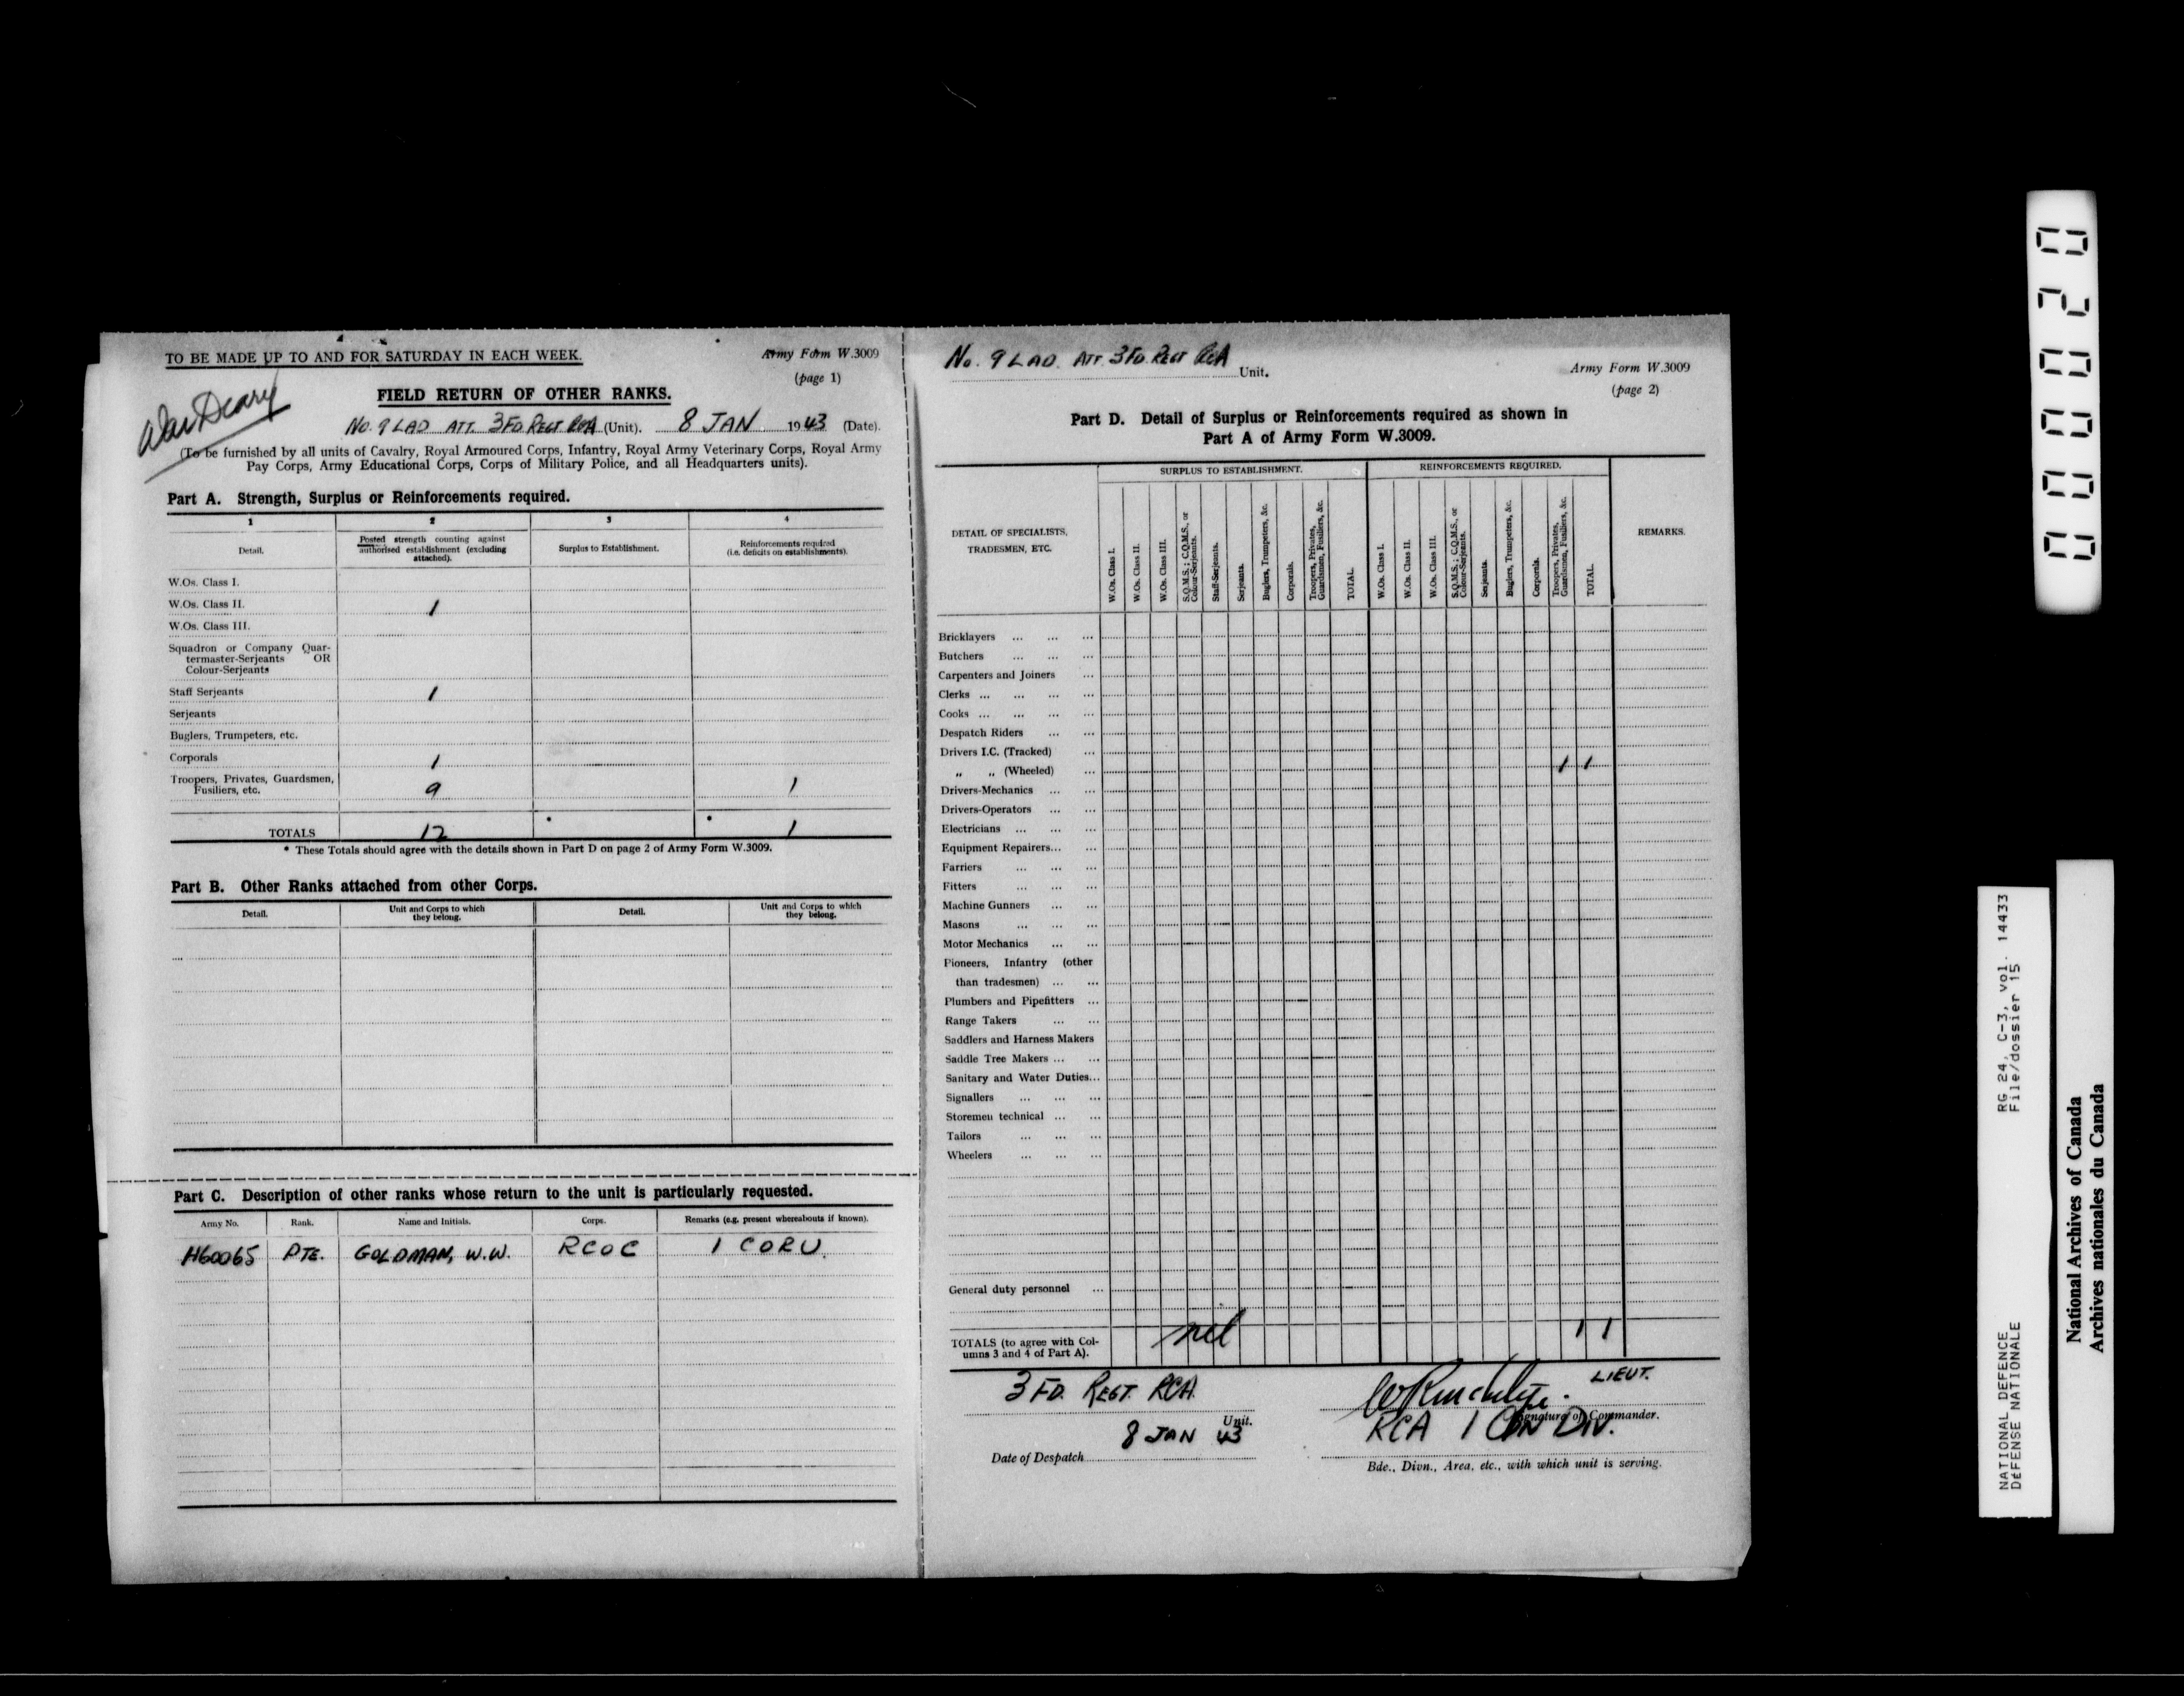 TO BE MADE UP TO AND FOR SATURDAY IN EACH WEEK.
Army Form W.3009
(page 1)
War Diary
FIELD RETURN OF OTHER RANKS.
No. 9 LAD ATT. 3 FD REGT RCA (Unit). 8 JAN 1943 (Date).
(To be furnished by all units of Cavalry, Royal Armoured Corps, Infantry, Royal Army Veterinary Corps, Royal Army
Pay Corps, Army Educational Corps, Corps of Military Police, and all Headquarters units).
Part A. Strength, Surplus or Reinforcements required.
1 2 3 4
Detail. Posted strength counting against authorised establishment (excluding attached). Surplus to Establishment. Reinforcements required (i.e. deficits on establishments).
W.Os. Class I.
W.Os. Class II. 1
W.Os. Class III.
Squadron or Company Quar-
termaster-Serjeants OR
Colour-Serjeants
Staff Serjeants 1
Serjeants
Buglers, Trumpeters, etc.
Corporals 1
Troopers, Privates, Guardsmen,
Fusiliers, etc. 9 1
TOTALS 12 * * 1
* These Totals should agree with the details shown in Part D on page 2 of Army Form W.3009.
Part B. Other Ranks attached from other Corps.
Detail. Unit and Corps to which they belong. Detail. Unit and Corps to which they belong.
Part C. Description of other ranks whose return to the unit is particularly requested.
Army No. Rank. Name and Initials. Corps. Remarks (e.g. present whereabouts if known).
H60065 PTE. GOLDMAN, W.W. RCOC 1 CORU.
No. 9 LAD ATT 3 FD REGT RCA Unit.
Army Form W.3009
(page 2)
Part D. Detail of Surplus or Reinforcements required as shown in
Part A of Army Form W.3009.
DETAIL OF SPECIALISTS,
TRADESMEN, ETC.
SURPLUS TO ESTABLISHMENT.
W.Os. Class I.
W.Os. Class II.
W.Os. Class III.
S.Q.M.S.; C.Q.M.S., or
Colour-Serjeants.
Staff-Serjeants.
Serjeants.
Buglers, Trumpeters, &c.
Corporals.
Troopers, Privates,
Guardsmen, Fusiliers, &c.
TOTAL.
REINFORCEMENTS REQUIRED.
W.Os. Class I.
W.Os. Class II.
W.Os. Class III.
S.Q.M.S.; C.Q.M.S., or
Colour-Serjeants.
Serjeants.
Buglers, Trumpeters, &c.
Corporals.
Troopers, Privates,
Guardsmen, Fusiliers, &c.
TOTAL.
REMARKS.
Bricklayers ... ... ...
Butchers ... ... ...
Carpenters and Joiners ...
Clerks ... ... ... ...
Cooks ... ... ... ...
Despatch Riders ... ...
Drivers I.C. (Tracked) ...
„ „ (Wheeled) ... 1 1
Drivers-Mechanics ... ...
Drivers-Operators ... ...
Electricians ... ... ...
Equipment Repairers... ...
Farriers ... ... ...
Fitters ... ... ...
Machine Gunners ... ...
Masons ... ... ...
Motor Mechanics ... ...
Pioneers, Infantry (other
than tradesmen) ... ...
Plumbers and Pipefitters ...
Range Takers ... ...
Saddlers and Harness Makers
Saddle Tree Makers ... ...
Sanitary and Water Duties...
Signallers ... ... ...
Storemen technical ... ...
Tailors ... ... ...
Wheelers ... ... ...
General duty personnel ...
TOTALS (to agree with Col-
umns 3 and 4 of Part A). nil 1 1
3 FD. REGT. RCA.
Unit.
LIEUT.
Signature of Commander.
8 JAN 43
Date of Despatch
RCA 1 CDN DIV.
Bde., Divn., Area, etc., with which unit is serving.
00020
RG 24, C-3, vol. 14433
File/dossier 15
NATIONAL DEFENCE
DÉFENSE NATIONALE
National Archives of Canada
Archives nationales du Canada